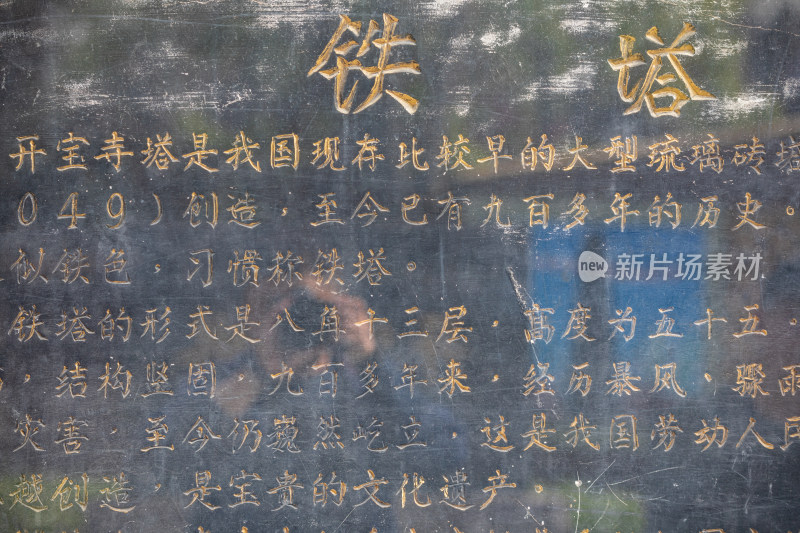 铁塔
开宝寺塔是我国现存比较早的大型琉璃砖塔
049）创造，至今已有九百多年的历史。
似铁色，习惯称铁塔。
铁塔的形式是八角十三层，高度为五十五.
，结构坚固，九百多年来，经历暴风、骤雨
灾害，至今仍巍然屹立，这是我国劳动人民
越创造，是宝贵的文化遗产。
new 新片场素材